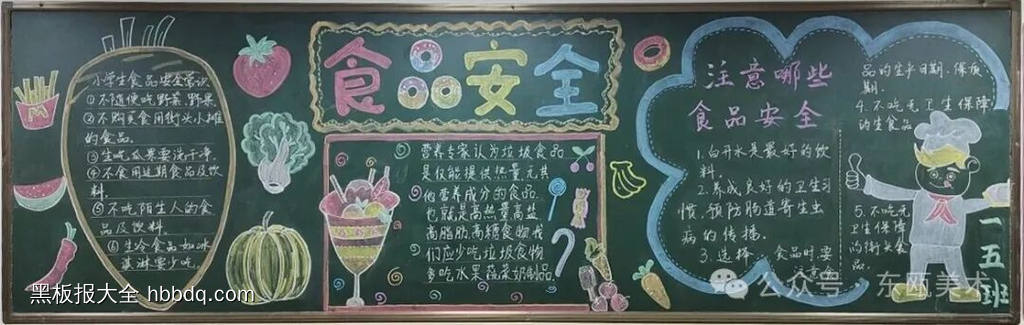 小学生食品安全常识
①不随便吃野菜、野果.
②不购买食用街头小摊
的食品.
③生吃瓜果要洗干净.
④不食用过期食品及饮
料.
⑤不吃陌生人的食
品及饮料.
⑥生冷食品如冰
淇淋要少吃.
食品安全
营养专家认为垃圾食品
是仅能提供热量无其
他营养成分的食品
也就是高热量高盐
高脂肪高糖食物我
们应少吃垃圾食物
多吃水果蔬菜奶制品
注意哪些
食品安全
1.白开水是最好的饮
料.
2.养成良好的卫生习
惯,预防肠道寄生虫
病的传播.
3.选择 食品时要
品的生产日期、保质
期.
4.不吃无卫生保障
的生食品
5.不吃无
卫生保障
的街头食
品.
一五班
M
黑板报大全 hbbdq.com
公众号 东瓯美术